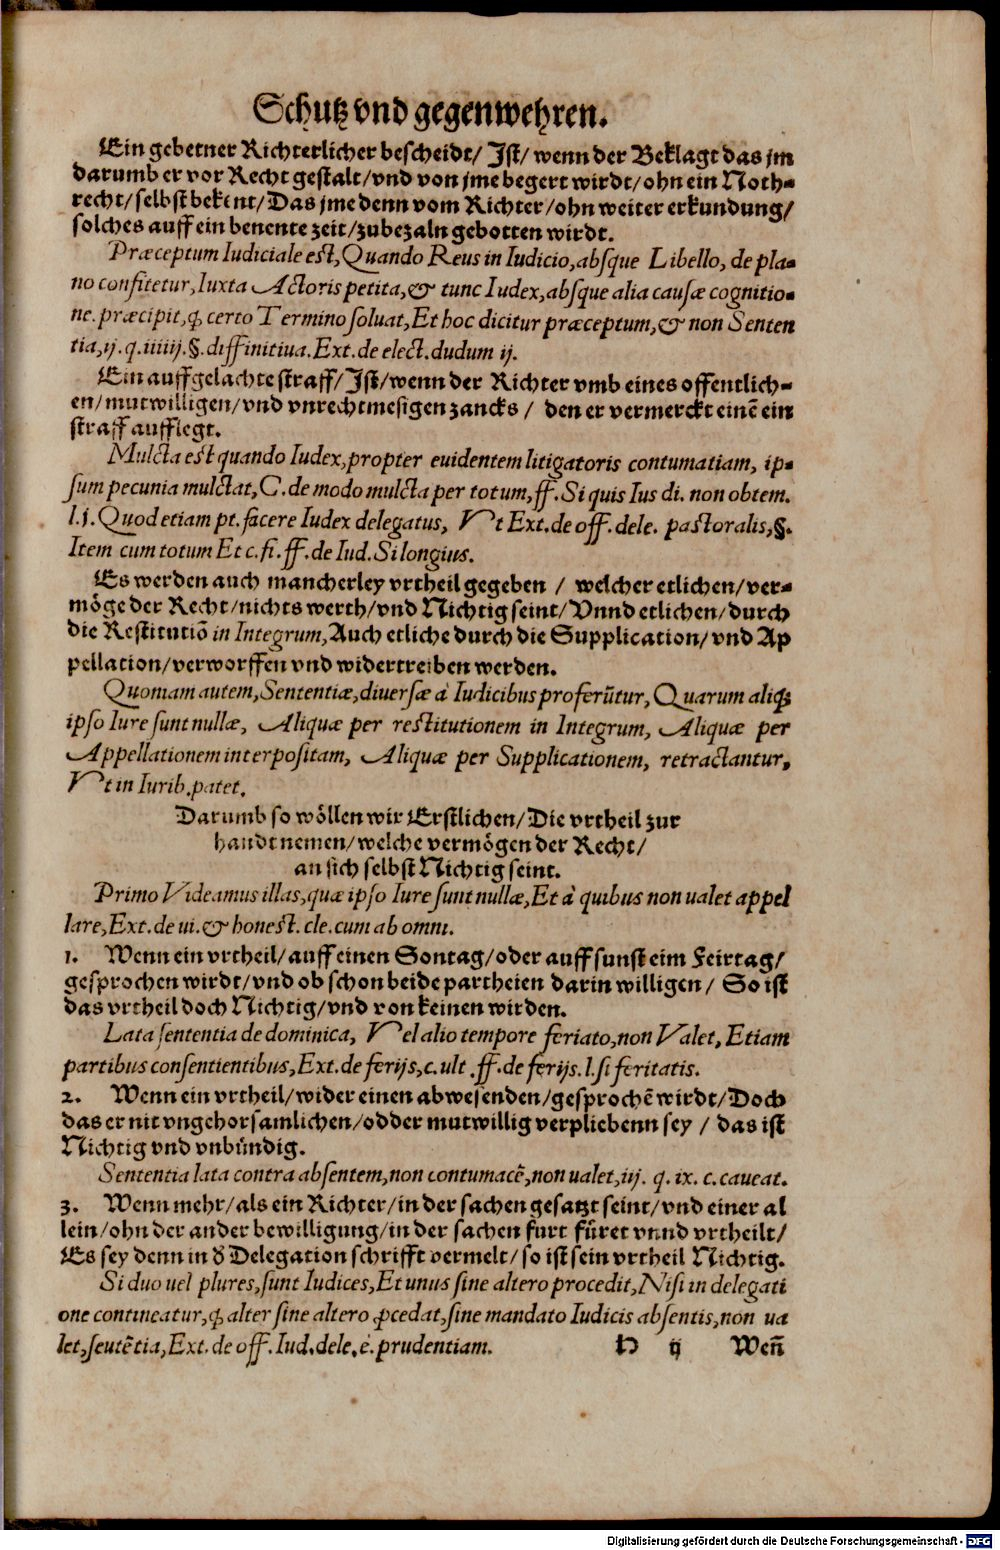 Schutz vnd gegenwehren.
Ein gebetner Richterlicher bescheidt/ Ist/ wenn der Beklagt das jm
darumb er vor Recht gestalt/vnd von jme begert wirdt/ohn ein Noth-
recht/selbst bekent/Das jme denn vom Richter/ohn weiter erkundung/
solches auff ein benente zeit/zubezaln gebotten wirdt.
Præceptum Iudiciale est, Quando Reus in Iudicio, absque Libello, de pla-
no confitetur, Iuxta Actoris petita, & tunc Iudex, absque alia causæ cognitio-
ne. præcipit, ꝙ certo Termino soluat, Et hoc dicitur præceptum, & non Senten
tia, ij. q. iiiiij. §. diffinitiua. Ext. de elect. dudum ij.
Ein auffgelachte straff/Ist/wenn der Richter vmb eines offentlich-
en/mutwilligen/vnd vnrechtmesigen zancks/ den er vermerckt einē ein
straff aufflegt.
Mulcta est quando Iudex, propter euidentem litigatoris contumatiam, ip-
sum pecunia mulctat, C. de modo mulcta per totum, ff. Si quis Ius di. non obtem.
l. j. Quod etiam pt. facere Iudex delegatus, Vt Ext. de off. dele. pastoralis, §.
Item cum totum Et c. fi. ff. de Iud. Si longius.
Es werden auch mancherley vrtheil gegeben / welcher etlichen/ver-
möge der Recht/nichts werth/vnd Nichtig seint/Vnnd etlichen/durch
die Restitutiō in Integrum, Auch etliche durch die Supplication/vnd Ap
pellation/verworffen vnd widertreiben werden.
Quoniam autem, Sententiæ, diuersæ à Iudicibus proferūtur, Quarum aliqꝫ
ipso Iure sunt nullæ, Aliquæ per restitutionem in Integrum, Aliquæ per
Appellationem interpositam, Aliquæ per Supplicationem, retractantur,
Vt in Iurib. patet.
Darumb so wöllen wir Erstlichen/Die vrtheil zur
handt nemen/welche vermögen der Recht/
an sich selbst Nichtig seint.
Primo Videamus illas, quæ ipso Iure sunt nullæ, Et à quibus non ualet appel
lare, Ext. de ui. & honest. cle. cum ab omni.
1. Wenn ein vrtheil/auff einen Sontag/oder auff sunst eim Feirtag/
gesprochen wirdt/vnd ob schon beide partheien darin willigen/ So ist
das vrtheil doch Nichtig/vnd von keinen wirden.
Lata sententia de dominica, Vel alio tempore feriato, non Valet, Etiam
partibus consentientibus, Ext. de ferijs, c. ult. ff. de ferijs. l. si feritatis.
2. Wenn ein vrtheil/wider einen abwesenden/gesprochē wirdt/Doch
das er nit vngehorsamlichen/odder mutwillig verpliebenn sey / das ist
Nichtig vnd vnbündig.
Sententia lata contra absentem, non contumacē, non ualet, iij. q. ix. c. caueat.
3. Wenn mehr/als ein Richter/in der sachen gesatzt seint/vnd einer al
lein/ohn der ander bewilligung/in der sachen furt füret vnnd vrtheilt/
Es sey denn in ð Delegation schrifft vermelt/so ist sein vrtheil Nichtig.
Si duo uel plures, sunt Iudices, Et unus sine altero procedit, Nisi in delegati
one contineatur, ꝙ alter sine altero ꝓcedat, sine mandato Iudicis absentis, non ua
let, seutētia, Ext. de off. Iud. dele. è. prudentiam. D ij Weñ
Digitalisierung gefördert durch die Deutsche Forschungsgemeinschaft - DFG